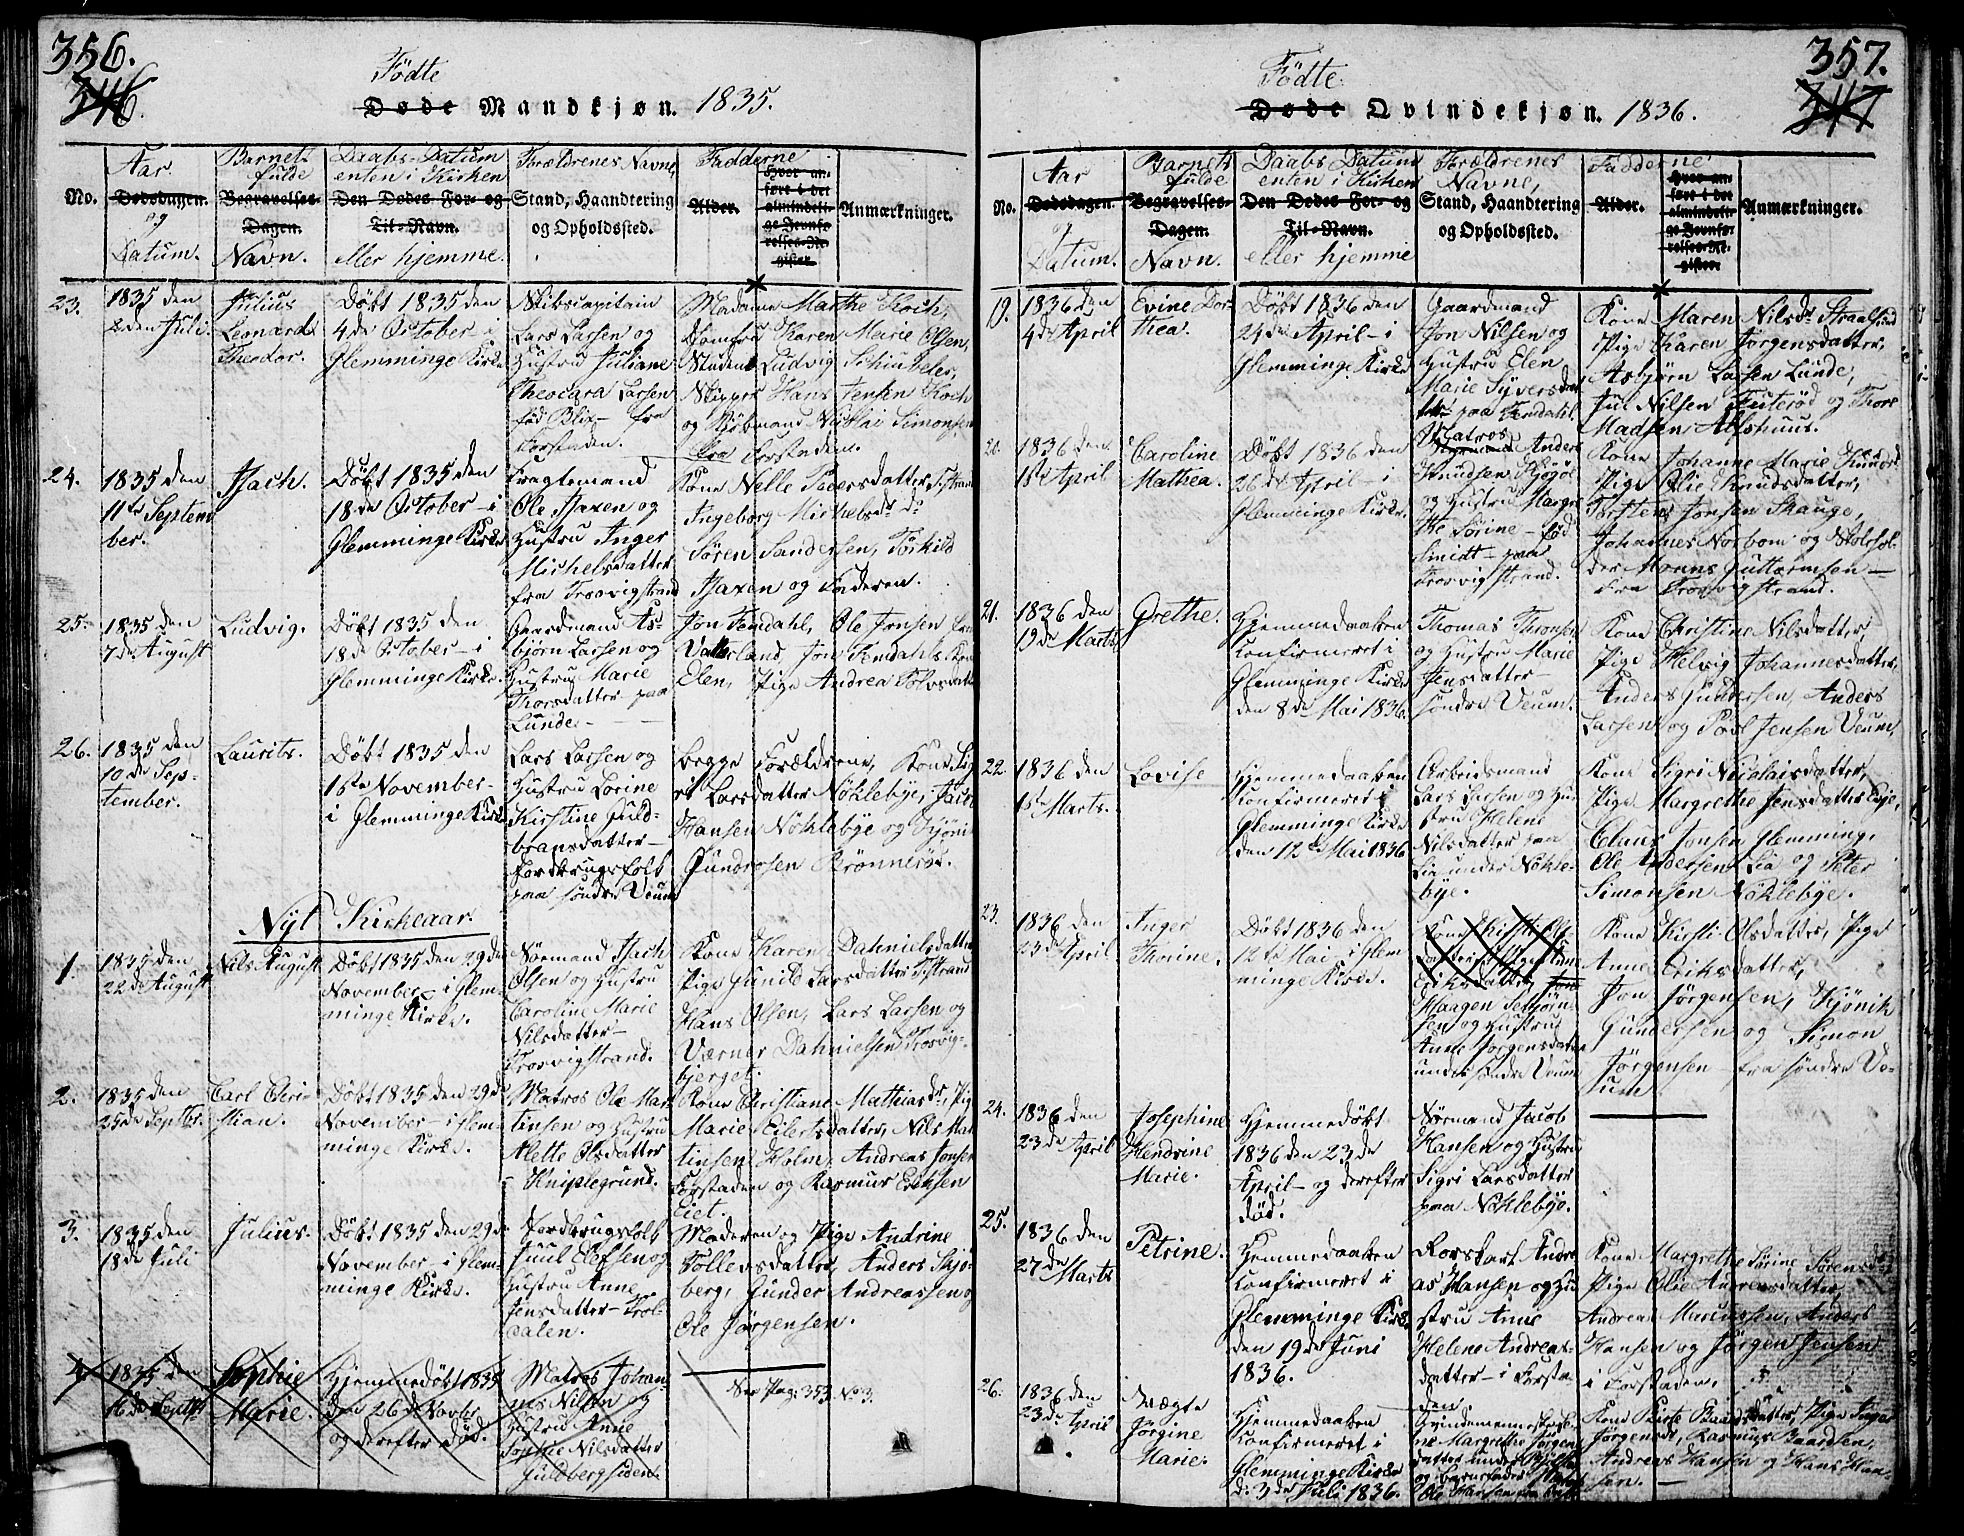 356.
346.
Födte
Døde Mandkjøn. 1835.
No.
Aar
Dødsdagen.
og
Datum.
Barnets
fulde
Begravelses-
Dagen.
Navn.
Daabs-Datum
enten i Kirken
Den Dødes For- og
Til-Navn.
eller hjemme.
Forældrenes Navne,
Stand, Haandtering
og Opholdssted.
Fadderne
Alder.
Hvor an-
føre i det
almindeli-
ge Jevnfø-
relses-Re-
gister.
Anmærkninger.
23.
1835 den
2den Juli.
Julius
Leonard
Theodor.
Döbt 1835 den
4de October - i
Glemminge Kirke
Skibscapitain
Lars Larsen og
Hustru Juliane
Theocara Larsen
föd Blix - fra
Forstaden.
Madame Marthe Koch,
Jomfru Karen Marie Olsen,
Student Ludvig Schiubeler,
Skipper Hans Jensen Koch
og Kjöbmand Nicolai Simonsen
fra Forstaden.
24.
1835 den
11te Septem
ber.
Isach.
Döbt 1835 den
18de October - i
Glemminge Kirke
Fragtemand
Ole Isaxen og
Hustru Inger
Michelsdatter
fra Trosvigstrand
Kone Nelle Pedersdatter Tstrand
Ingeborg Michelsdr. do
Sören Sandersen, Törkild
Isaxen og Faderen.
25.
1835 den
7de August
Ludvig.
Döbt 1835 den
18de October - i
Glemminge Kirke.
Gaardmand As-
björn Larsen og
Hustru Marie
Thorsdatter paa
Lunde.
Jon Femdahl, Ole Jensen
Vatterland, Jon Femdahls Kone
Elen, Pige Andrea Tolvsdatter
26.
1835 den
10de Sep-
tember.
Laurits.
Döbt 1835 den
15de November -
i Glemminge Kirke
Lars Larsen og
Hustru Lorine
Kirstine Guld-
bransdatter -
Jordbrugsfolk
paa söndre Veum
begge Forældrene, Kone Sig-
ri Larsdatter Nöklebye, Jacob
Hansen Nöklebye og Kjönig
Gundersen Brönneröd.
Nyt Kirkeaar.
1.
1835 den
22de August
Nils August
Döbt 1835 den 29de
November - i Glem-
minge Kirke.
Sörmand Isach
Olsen og Hustru
Caroline Marie
Nilsdatter -
Trosvigstrand.
Kone Karen Dahnielsdatter
Pige Gunild Larsdatter Tstrand
Hans Olsen, Lars Larsen og
Værner Dahnielsen Trosvig-
bjerget.
2.
1835 den
25de Septbr.
Carl Chri-
stian.
Döbt 1835 den 29de
November - i Glem-
minge Kirke.
Matros Ole Mar
tinsen og Hustru
Alette Olsdatter
Kniplegrund.
Kone Christiane Mathiasdr. Pige
Marie Eilertsdatter, Nils Mar
tinsen Holm, Andreas Jensen
Forstaden og Rasmus Eriksen
Eiet.
3.
1835 den
18de Juli
Julius.
Döbt 1835 den 29de
November - i Glem-
minge Kirke.
Jordbrugsfolk
Juul Elefsen og
Hustru Anne
Jensdatter - Trol-
dalen.
Moderen og Pige Andrine
Tollevsdatter, Anders Skjö-
berg, Gunder Andreassen og
Ole Jörgensen.
4.
1835 den
16de Septbr
Sophie
Marie.
Hjemmedöbt 1835
den 26de Novbr
og derefter död.
Matros Johan-
nes Nilsen og
Hustru Anne
Sophie Nilsdatter
Guldbergsiden.
See Pag: 353. No 3.
357.
347
Födte
Døde Qvindekjøn. 1836.
No.
Aar
Dødsdagen.
og
Datum.
Barnets
fulde
Begravelses-
Dagen.
Navn.
Daabs Datum
enten i Kirken
Den Dødes For- og
Til-Navn.
eller hjemme
Forældrenes
Navne,
Stand, Haandtering
og Opholdssted.
Fadderne
Alder.
Hvor an-
føre i det
almindeli-
ge Jevnfø-
relses-Re-
gister.
Anmærkninger.
19.
1836 den
4de April
Evine Dor-
thea.
Döbt 1836 den
24de April - i
Glemminge Kirke
Gaardmand
Jon Nilsen og
Hustru Elen
Marie Syversdat
ter paa Femdahl.
Kone Maren Nilsdr. Straalsund
Pige Karen Jörgensdatter,
Asbjörn Larsen Lunde,
Jul Nilsen Tuteröd og Thore
Madsen Alshuus.
20.
1836 den
1ste April
Caroline
Mathea.
Döbt 1836 den
26de April - i
Glemminge Kirke.
Matros Anders
Knudsen
og Hustru Margre
the Sörine - föd
Smidt - paa
Trosvigstrand.
Kone Johanne Marie Knuds
Pige Olie Knudsdatter,
Torsten Jonsen Skauge,
Johannes Norbom og
der Monns Guttormsen -
fra Trosvigstrand.
21.
1836 den
19de Marts
Grethe.
Hjemmedaaben
Confirmeret i
Glemminge Kirke
den 8de Mai 1836.
Thomas Thronsen
og Hustru Marie
Jensdatter -
söndre Veum.
Kone Christine Nilsdatter,
Pige Helvig Johannesdatter,
Anders Gundersen, Anders
Larsen og Povl Jensen Veum,
22.
1836 den
1ste Marts.
Lovise
Hjemmedaaben
Confirmeret i
Glemminge Kirke
den 12te Mai 1836
Arbeidsmand
Lars Larsen og Hu-
stru Helene
Nilsdatter paa
Lie under Nökle-
bye.
Kone Sigri Nicolaisdatter,
Pige Margrethe Jensdatter Lie,
Claus Jonsen Glemming,
Ole Andersen Lia og Peter
Simonsen Nöklebye.
23.
1836 den
23de April
Inger
Thrine.
Döbt 1836 den
12te Mai - i Glem
minge Kirke.
Kone Kirsti Ols
datter, Pige Anne
Eriksdatter, Jon
Haagen Setbjörn-
sen og Hustru
Anne Jörgensdatter
under söndre Veum
Kone Kirsti Olsdatter, Pige
Anne Eriksdatter,
Jon Jörgensen, Kjönik
Gundersen og Simon
Jörgensen fra söndre Ve-
um
24.
1836 den
23de April
Josephine
Hendrine
Marie.
Hjemmedöbt
1836 den 23de
April - og derefter
död.
Sörmand Jacob
Hansen og Hustru
Sigri Larsdatter
paa Nöklebye.
25.
1836 den
27de Marts
Petrine.
Hjemmedaaben
Confirmeret i
Glemminge Kirke
den 19de Juni
1836.
Rorskarl Andre
as Hansen og Hu-
stru Anne
Helene Andreas-
datter - i Forsta-
den
Kone Margrethe Sörine Sörensdr.
Pige Olie Andreasdatter,
Andreas Marcussen, Anders
Hansen og Jörgen Jensen
i Forstaden.
26.
1836 den
23de April
Uægte
Jörgine
Marie.
Hjemmedaaben
Confirmeret i
Glemminge Kirke
d: 3de Juli 1836.
Qvindemennesket
Margrethe Jörgens
datter under
og Barnefader Matros
Ole Hansen
Kone Birte Baardsdatter, Pige Inger
Jörgensdr, Rasmus Baardsen,
Andreas Hansen og Hans Han-
sen. -